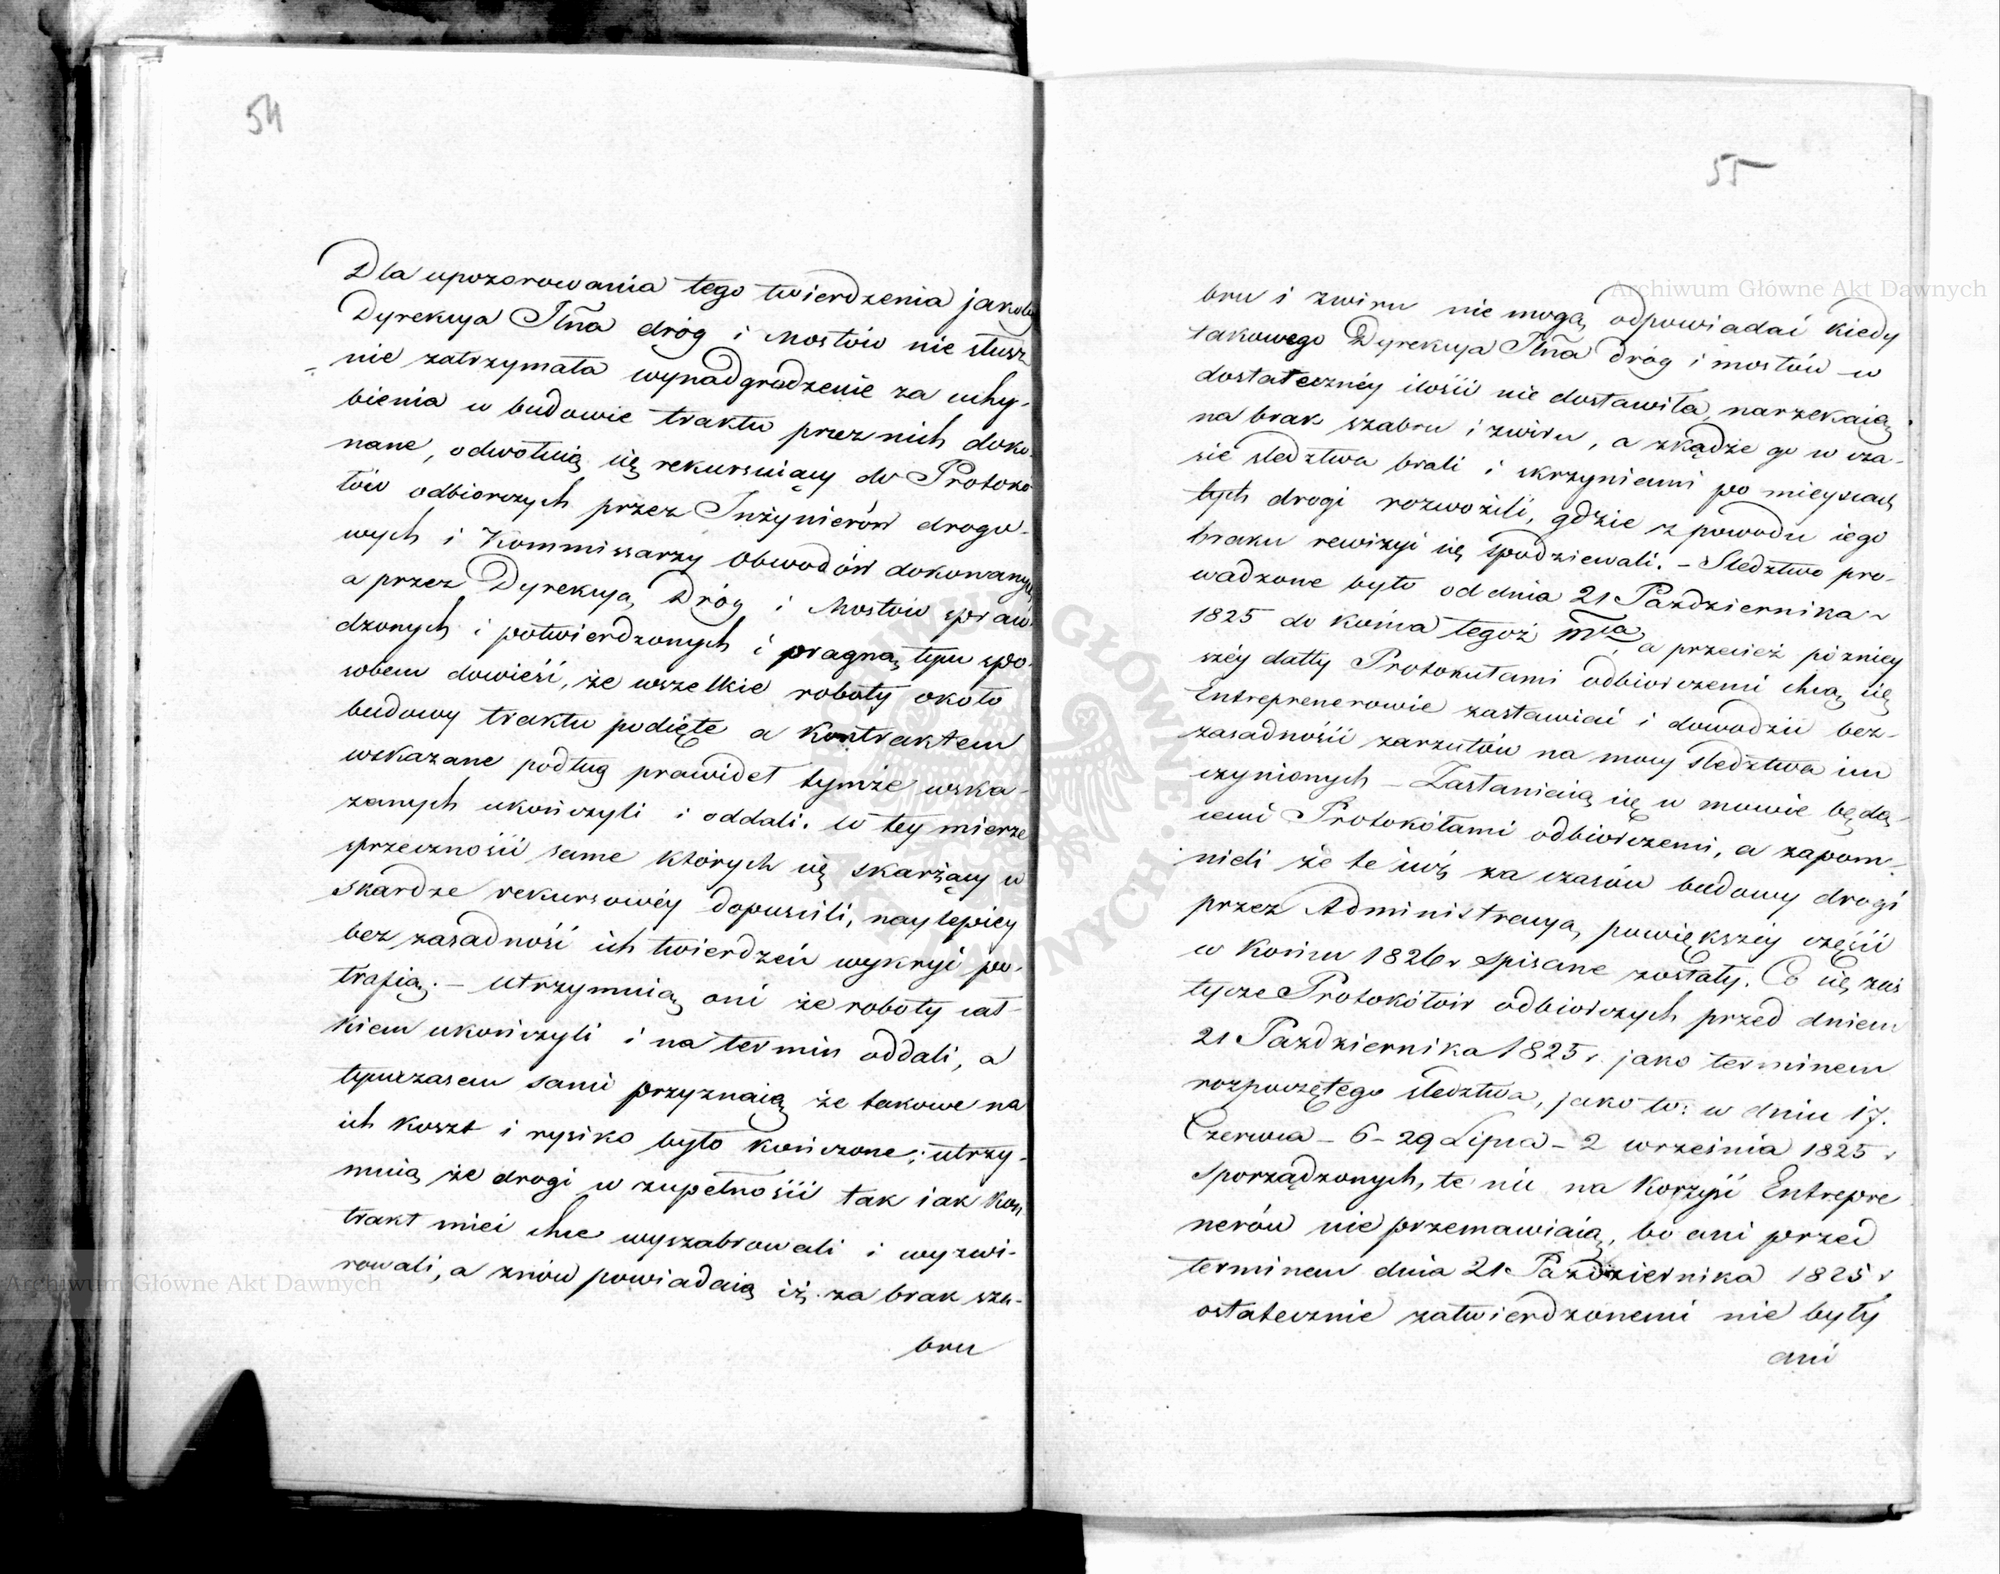 54
Dla upozorowania tego twierdzenia jakoby
Dyrekcya Jlna dróg i Mostów nie słusz
nie zatrzymała wynadgrodzenie za uchy-
bienia w budowie traktu przez nich doko-
nane, odwołuią się rekursuiący do Protoko
łów odbiorczych przez Inżynierów drogo-
wych i Kommissarzy Obwodów dokonanych
a przez Dyrekcyą Dróg i Mostów spraw-
dzonych i potwierdzonych i pragną tym spo-
sobem dowieść, że wszelkie roboty około
budowy traktu podięte a kontraktem
wskazane podług prawideł tymże wska-
zanych ukończyli i oddali. W tey mierze
sprzeczności same których się skarżący w
skardze rekursowéy dopuścili, naylepiey
bez zasadność ich twierdzeń wykryć po-
trafią. - Utrzymuią oni że roboty cał-
kiem ukończyli i na termin oddali, a
tymczasem sami przyznaią że takowe na
ich koszt i rysiko było kończone; utrzy-
muią że drogi w zupełności tak iak kon
trakt mieć chce wyszabrowali i wyzwi-
rowali, a znów powiadaią iż za brak sza-
bru
55
bru i zwiru nie mogą odpowiadać kiedy
takowego Dyrekcya Jlna dróg i mostów w
dostatecznéy ilości nie dostawiła, narzekaią
na brak szabru i zwiru, a zkądże go w cza-
sie sledztwa brali i skrzyniami po mieyscach
tych drogi rozwozili, gdzie z powodu iego
braku rewizyi się spodziewali. - Sledztwo pro-
wadzone było od dnia 21 Pazdziernika
1825 do końca tegoż mca, a przecież poźniey
széy datty Protokułami odbiorczemi chcą się
Entreprenerowie zastawiać i dowodzić bez-
zasadności zarzutów na mocy sledztwa im
czynionych - Zastaniaią się w mowie będą-
cemi Protokółami odbiorczemi, a zapom-
nieli że te iuż za czasów budowy drogi
przez Administracyą powiększéy części
w Końcu 1826 r spisane zostały. Co się zaś
tycze Protokółów odbiorczych przed dniem
21 Pazdziernika 1825 r. jako terminem
rozpoczętego sledztwa, jako to: w dniu 17.
Czerwca - 6 - 29 Lipca - 2 września 1825 r
sporządzonych, te nic na Korzyść Entrepre
nerów nie przemawiaią, bo ani przed
terminem dnia 21 Pazdziernika 1825 r
ostatecznie zatwierdzonemi nie były
ani
Archiwum Główne Akt Dawnych
Archiwum Główne Akt Dawnych
ARCHIWUM GŁÓWNE AKT DAWNYCH